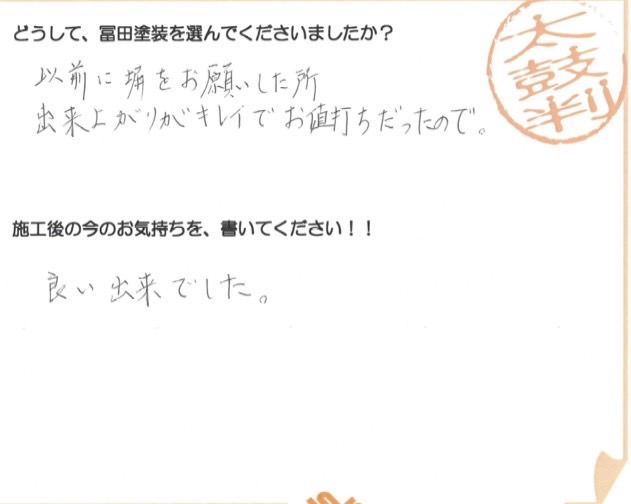 どうして、冨田塗装を選んでくださいましたか?
以前に塀をお願いした所
出来上がりがキレイでお値打ちだったので。
太鼓判
施工後の今のお気持ちを、書いてください!!
良い出来でした。